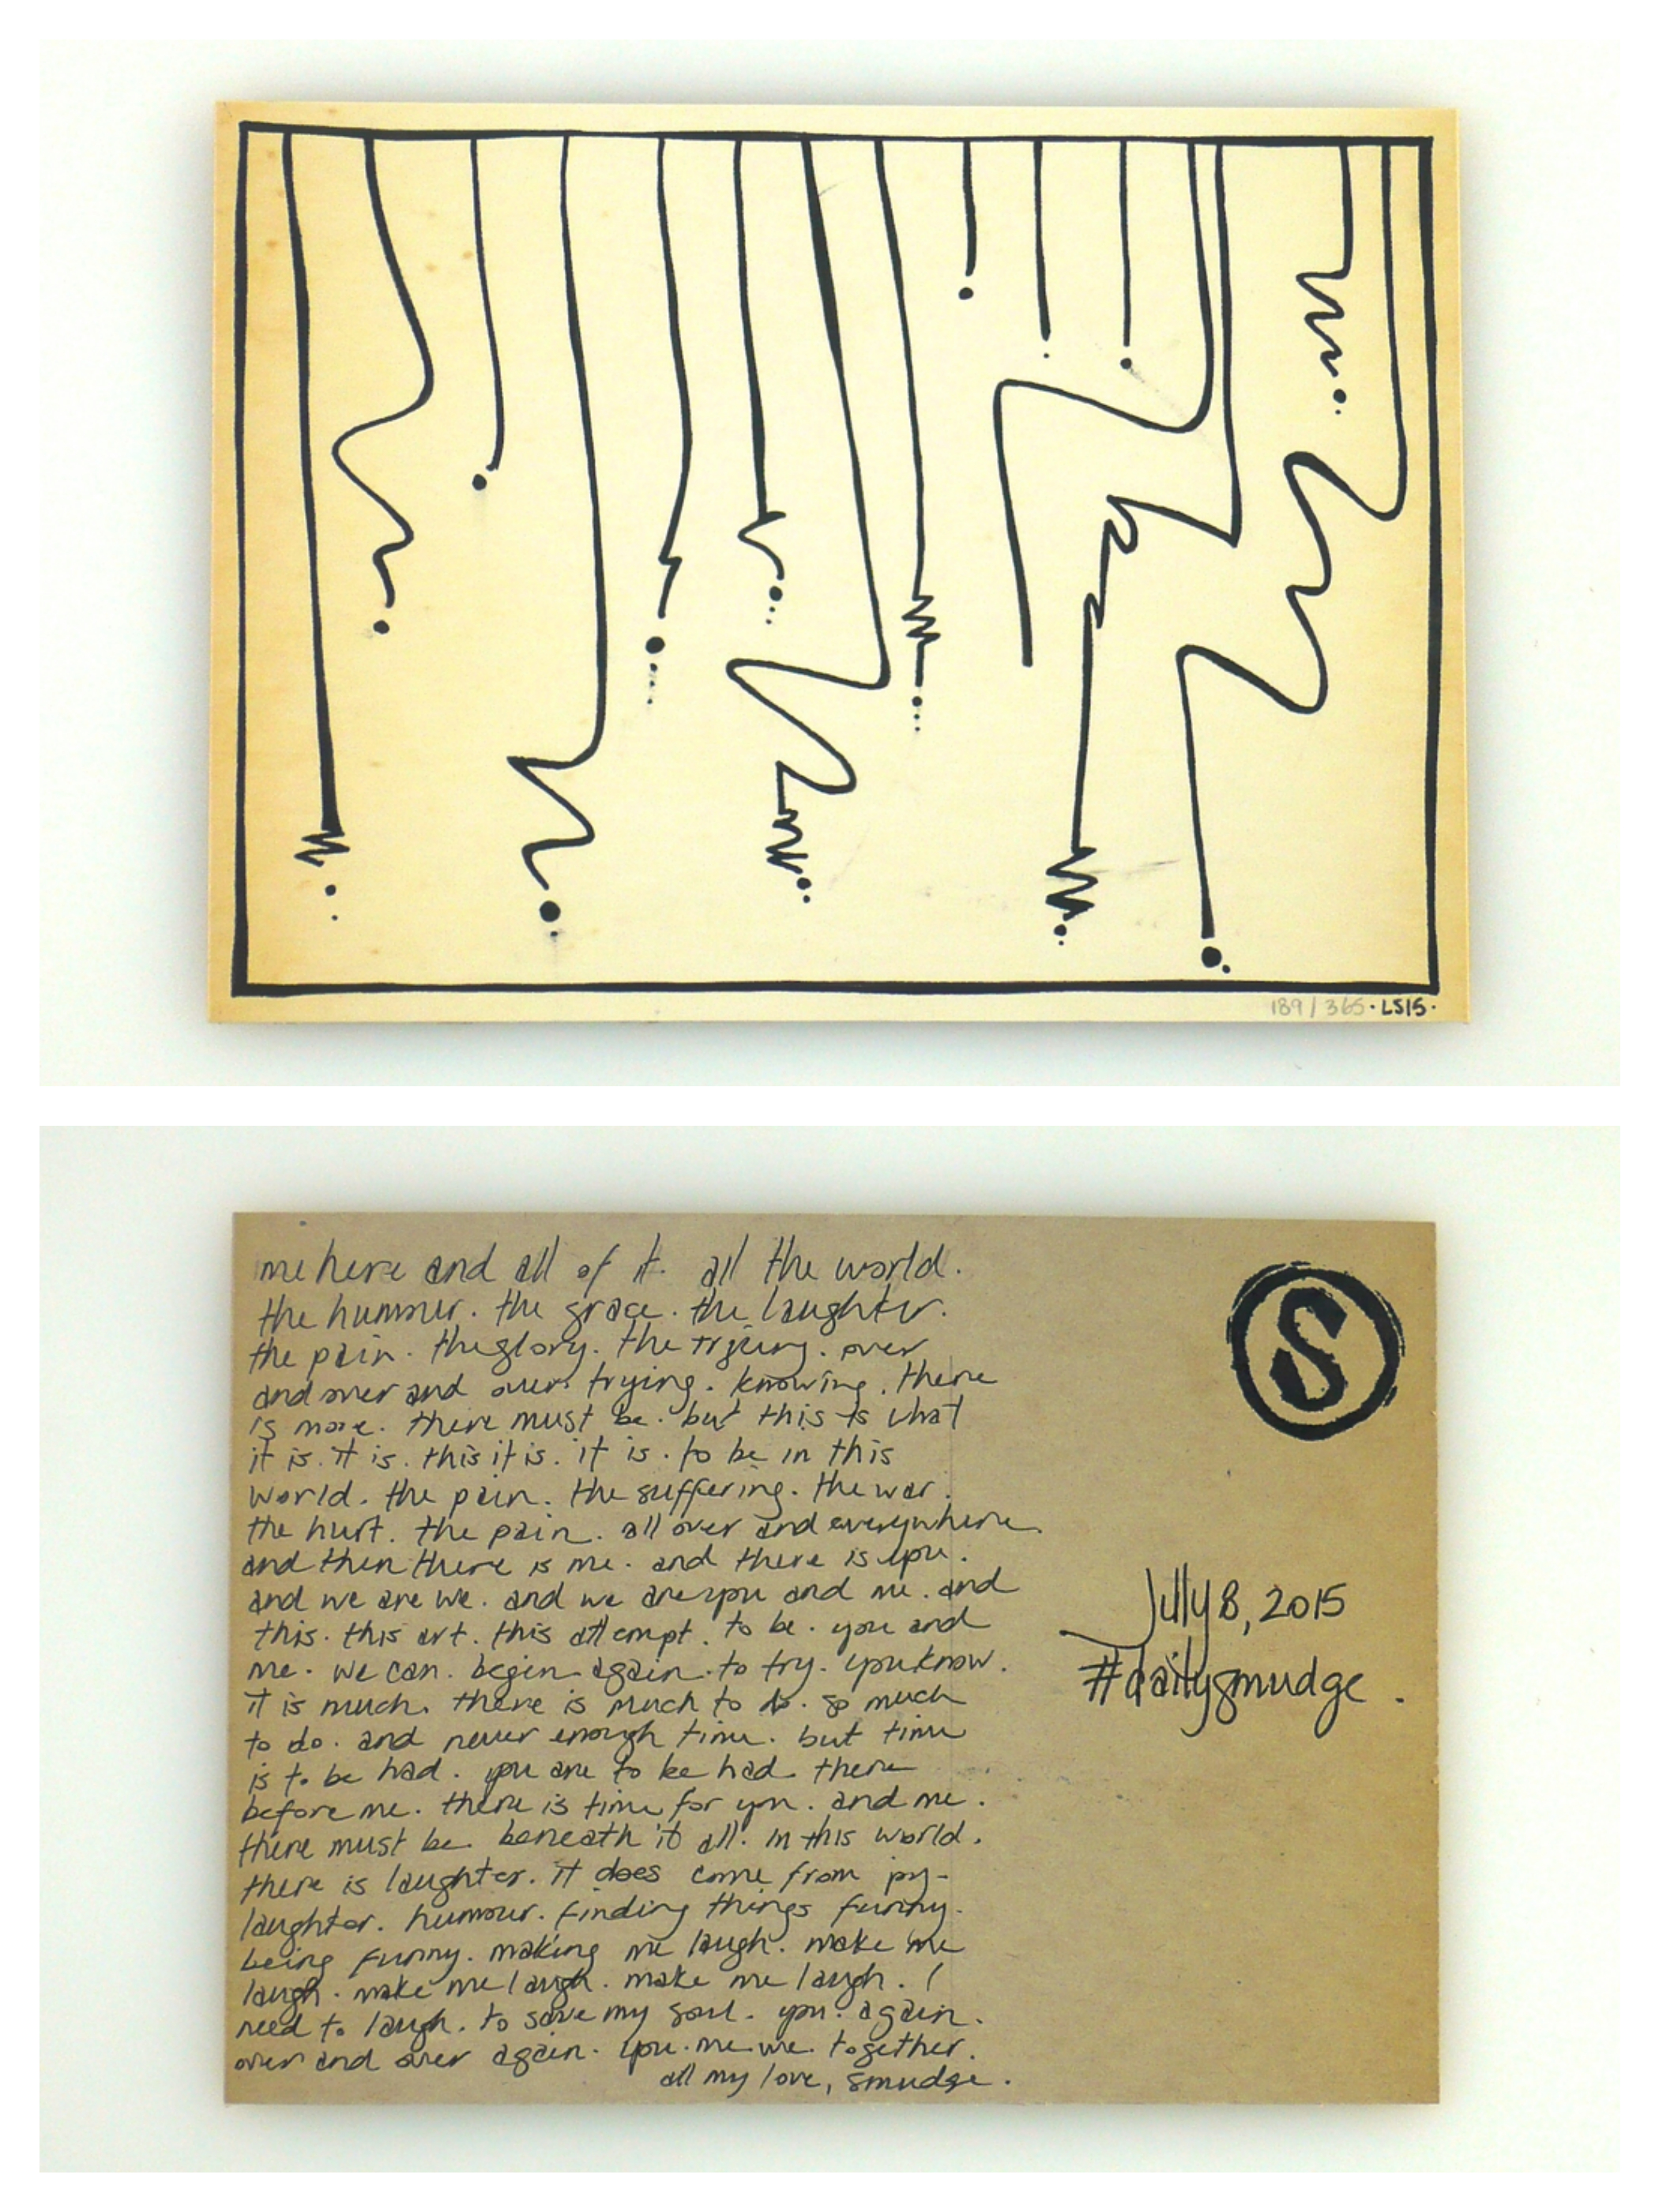 189/365 · LS15 ·
me here and all of it. all the world.
the humour. the grace. the laughter.
the pain. the glory. the trying. over
and over and over. trying. knowing. there
is more. there must be. but this is what
it is. it is. this it is. it is. to be in this
world. the pain. the suffering. the war.
the hurt. the pain. all over and everywhere.
and then there is me. and there is you.
and we are we. and we are you and me. and
this. this art. this attempt. to be. you and
me. we can. begin again. to try. you know.
it is much. there is much to do. so much
to do. and never enough time. but time
is to be had. you are to be had. there
before me. there is time for you. and me.
there must be. beneath it all. in this world.
there is laughter. it does come from joy-
laughter. humour. finding things funny.
being funny. making me laugh. make me
laugh. make me laugh. make me laugh. I
need to laugh. to save my soul. you. again.
over and over again. you. me. we. together.
all my love, smudge.
S
July 8, 2015
#dailysmudge.